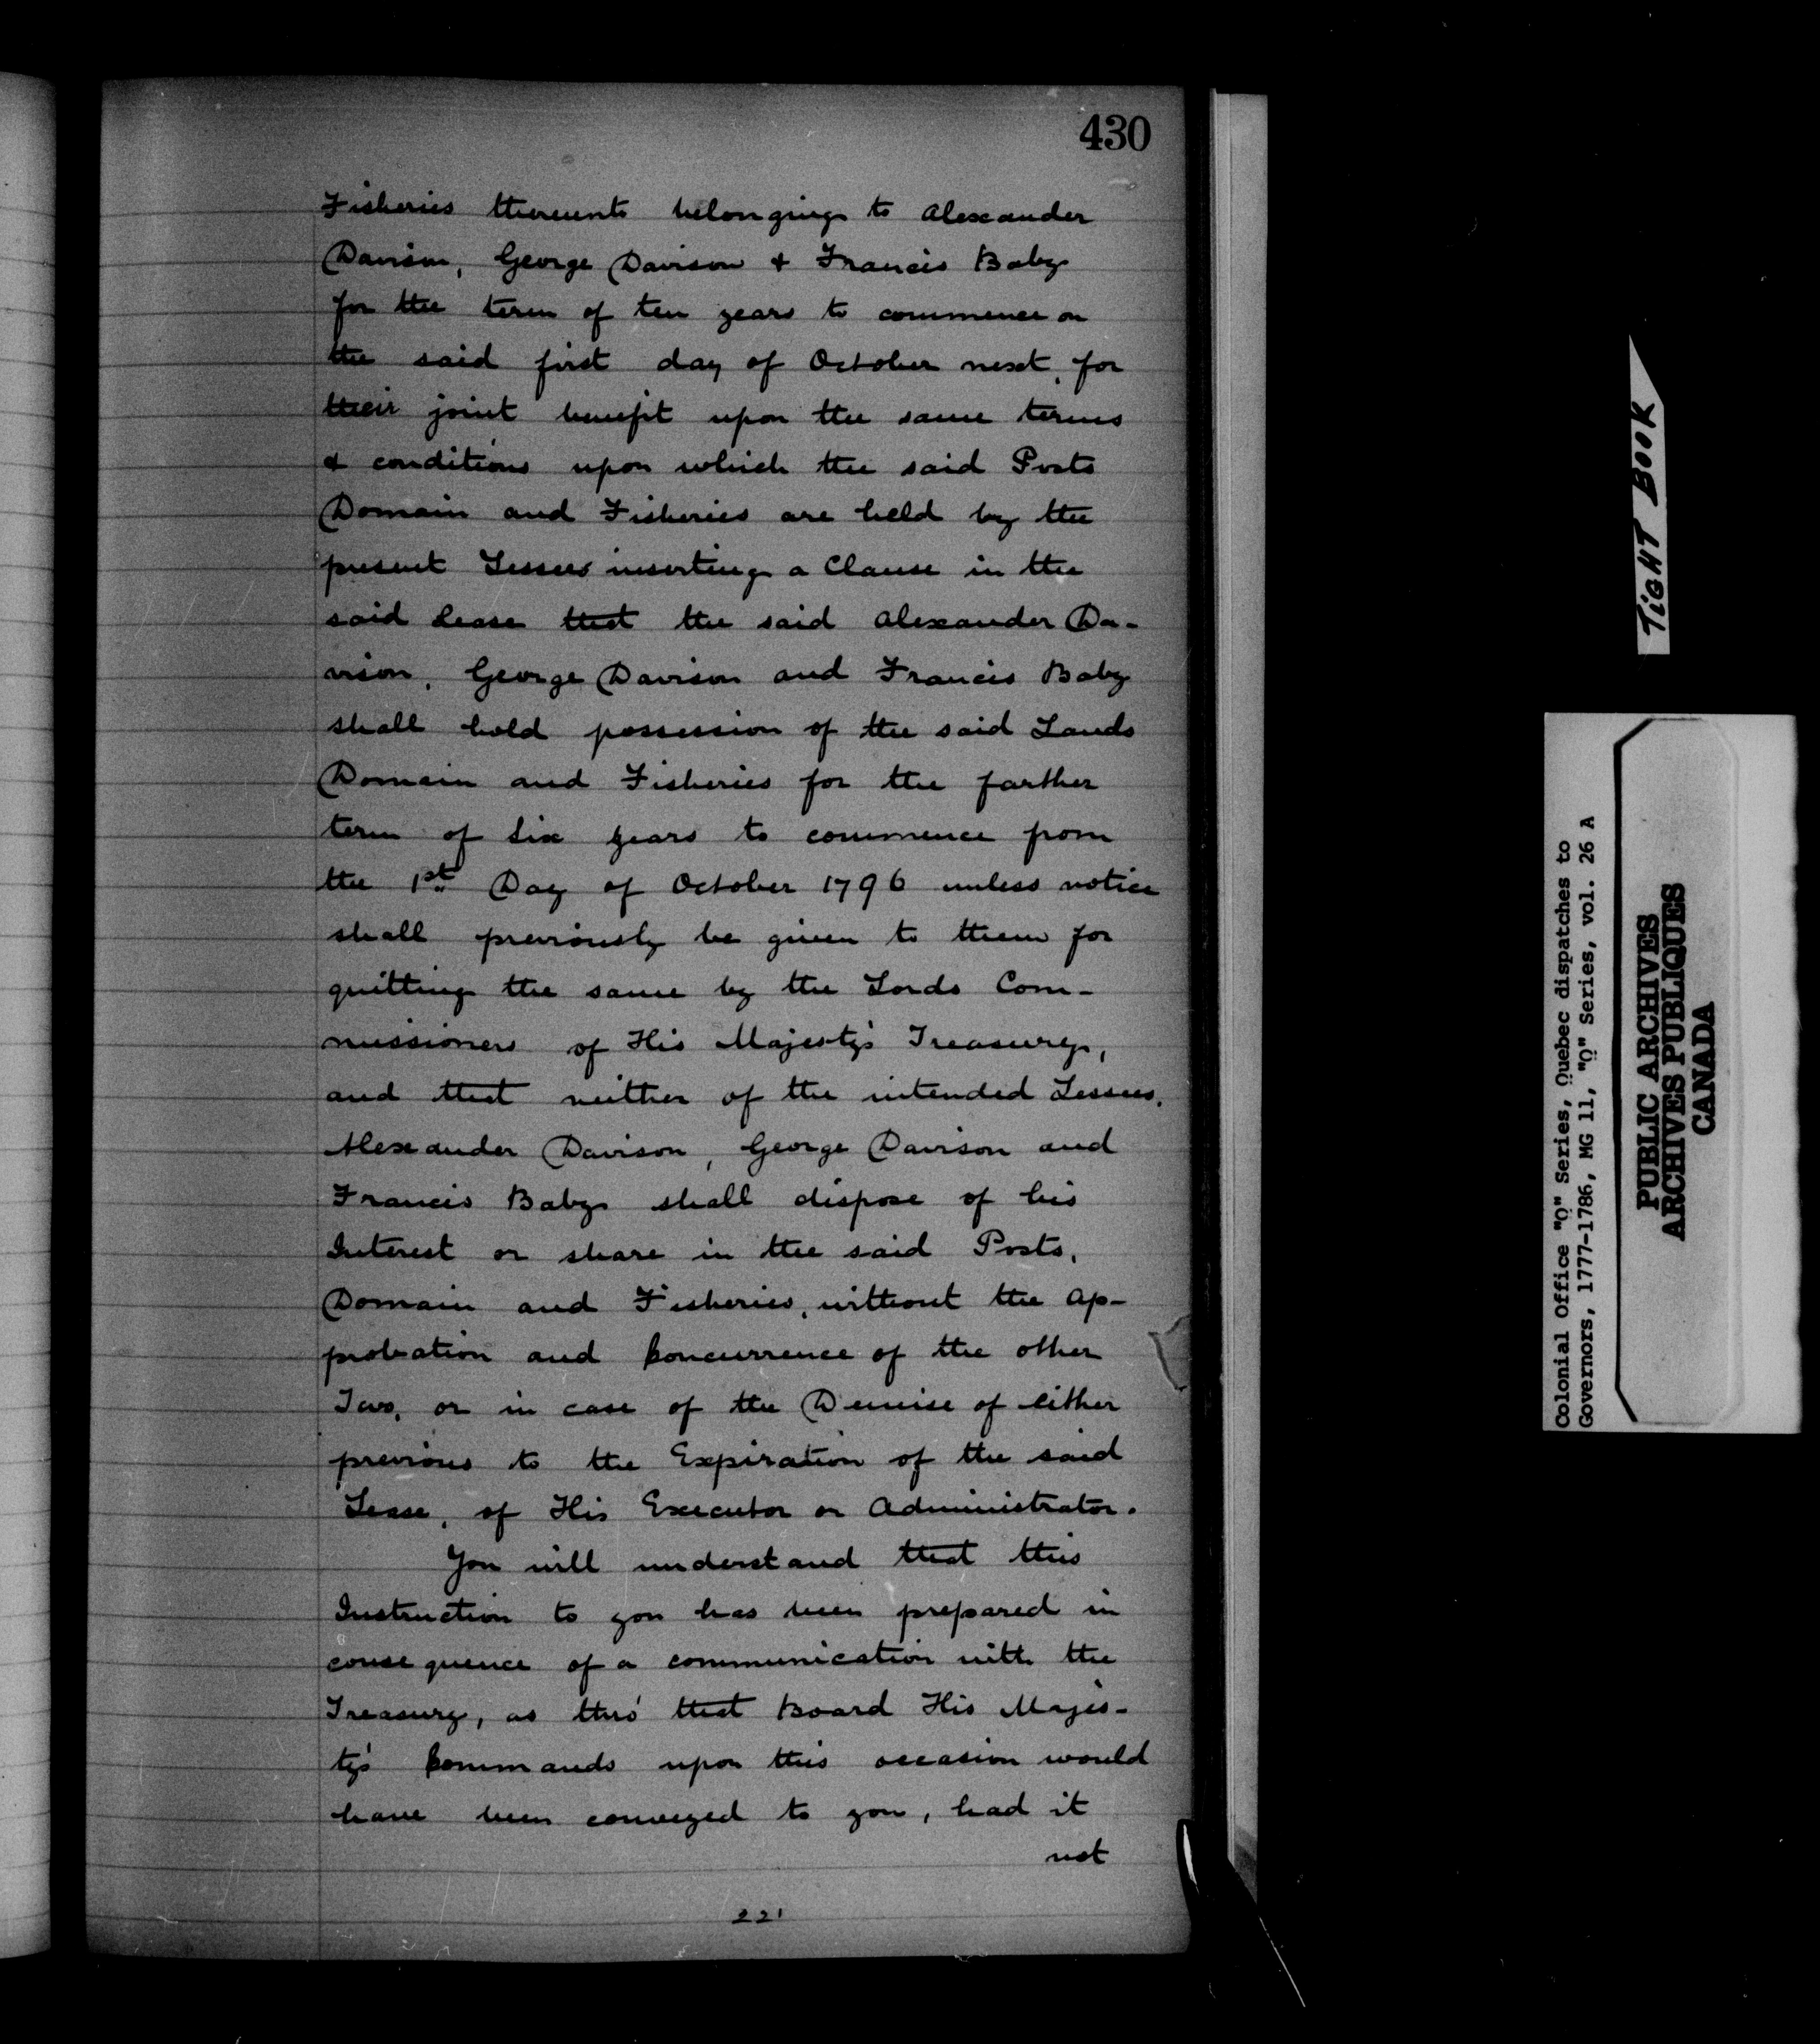 430
Fisheries thereunto belonging to Alexander
Davison, George Davison & Francis Baby
for the term of ten years to commence on
the said first day of October next, for
their joint benefit upon the same terms
& conditions upon which the said Posts
Domain and Fisheries are held by the
present Lessees inserting a Clause in the
said Lease that the said Alexander Da-
vison, George Davison and Francis Baby
shall hold possession of the said Lands
Domain and Fisheries for the farther
term of Six years to commence from
the 1st Day of October 1796 unless notice
shall previously be given to them for
quitting the same by the Lords Com-
missioners of His Majesty's Treasury,
and that neither of the intended Lessees,
Alexander Davison, George Davison and
Francis Baby shall dispose of his
Interest or share in the said Posts,
Domain and Fisheries, without the ap-
probation and Concurrence of the other
Two, or in case of the Demise of either
previous to the Expiration of the said
Lease, of His Executor or Administrator.
You will understand that this
Instruction to you has been prepared in
consequence of a communication with the
Treasury, as thro' that Board His Majes-
ty's Commands upon this occasion would
have been conveyed to you, had it
not
221
TIGHT BOOK
Colonial Office "Q" Series, Quebec dispatches to
Governors, 1777-1786, MG 11, "Q" Series, vol. 26 A
PUBLIC ARCHIVES
ARCHIVES PUBLIQUES
CANADA